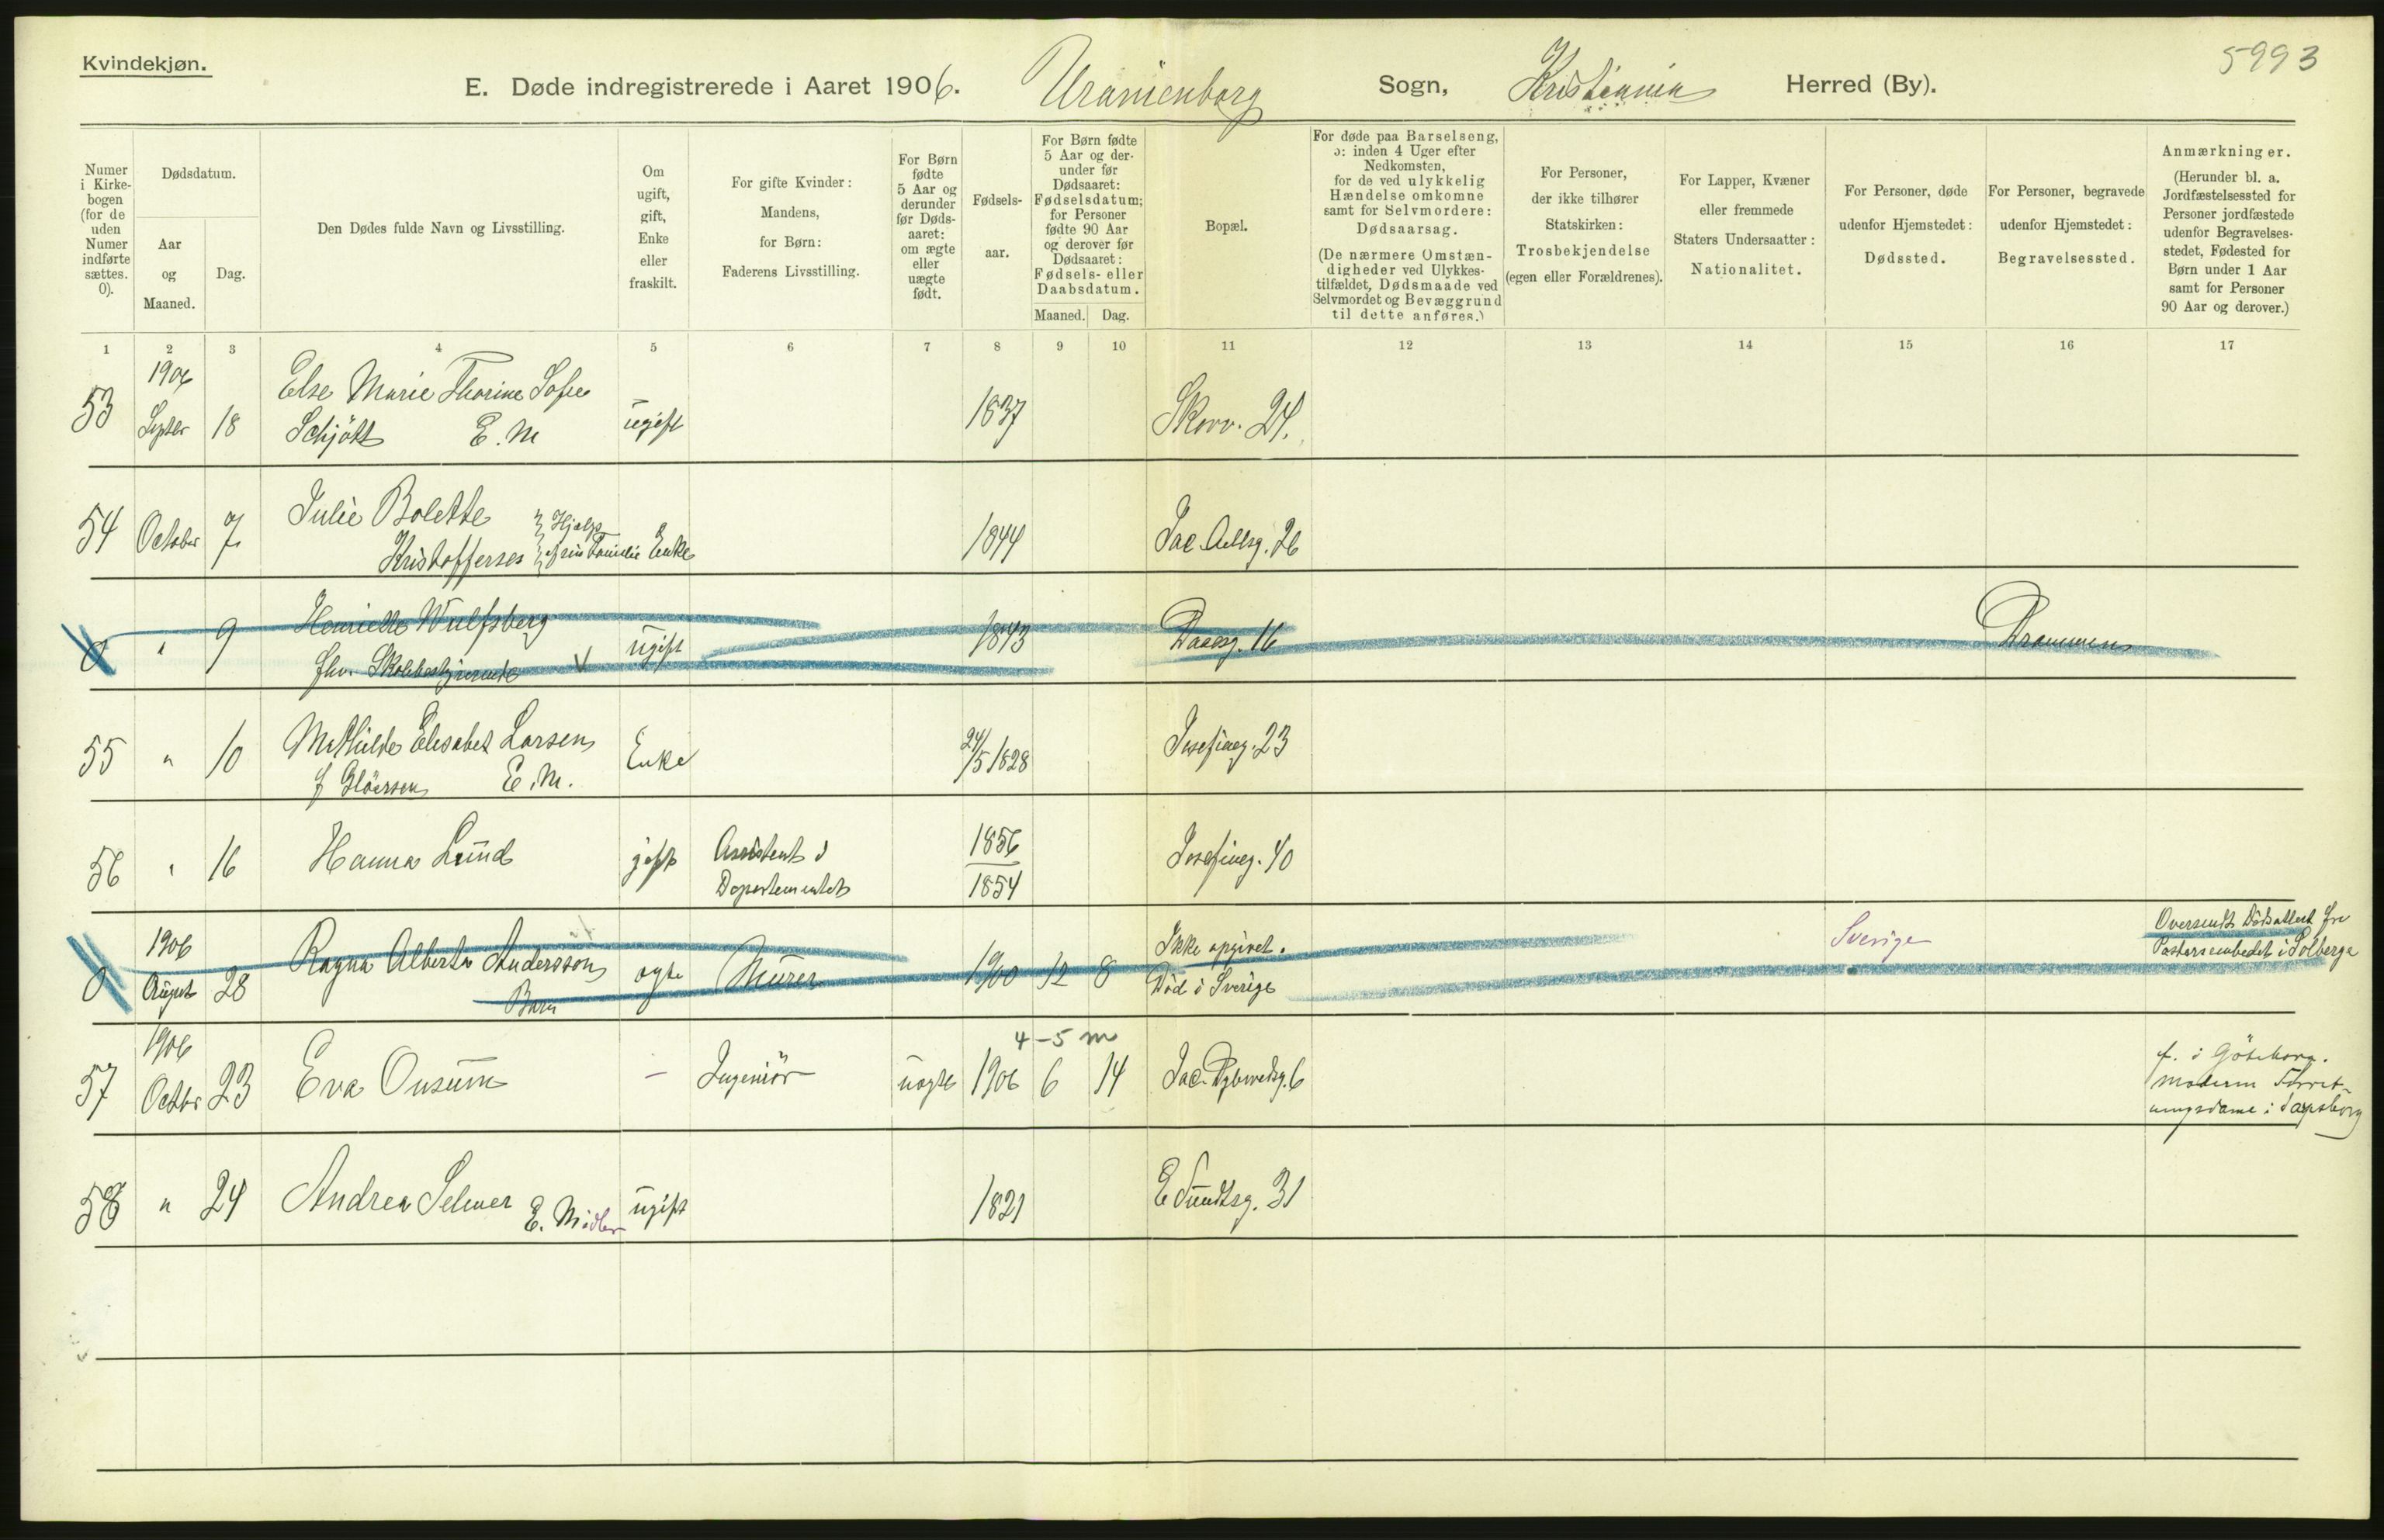 Kvindekjøn.
5993
E. Døde indregistrerede i Aaret 1906. Uranienborg Sogn, Kristiania Herred (By).
Numer i Kirkebogen (for de uden Numer indførte sættes. 0).
Dødsdatum.
Aar og Maaned.
Dag.
Den Dødes fulde Navn og Livsstilling.
Om ugift, gift, Enke eller fraskilt.
For gifte Kvinder: Mandens, for Børn: Faderens Livsstilling.
For Børn fødte 5 Aar og derunder før Dødsaaret: om ægte eller uægte født.
Fødselsaar.
For Børn fødte 5 Aar og derunder før Dødsaaret: Fødselsdatum; for Personer fødte 90 Aar og derover før Dødsaaret: Fødsels- eller Daabsdatum.
Maaned. Dag.
Bopæl.
For døde paa Barselseng, ɔ: inden 4 Uger efter Nedkomsten, for de ved ulykkelig Hændelse omkomne samt for Selvmordere: Dødsaarsag.
(De nærmere Omstændigheder ved Ulykkestilfældet, Dødsmaade ved Selvmordet og Bevæggrund til dette anføres.)
For Personer, der ikke tilhører Statskirken: Trosbekjendelse (egen eller Forældrenes).
For Lapper, Kvæner eller fremmede Staters Undersaatter: Nationalitet.
For Personer, døde udenfor Hjemstedet: Dødssted.
For Personer, begravede udenfor Hjemstedet: Begravelsessted.
Anmærkninger.
(Herunder bl. a. Jordfæstelsessted for Personer jordfæstede udenfor Begravelsesstedet, Fødested for Børn under 1 Aar samt for Personer 90 Aar og derover.)
1 2 3 4 5 6 7 8 9 10 11 12 13 14 15 16 17
1906 Else Marie Thorine Sofie
53 Septbr 18 Schjött E. M ugift 1837 Skovv. 24.
54 October 7 Julie Bolette } Hjelps
Kristoffersen } af sin Familie Enke 1844 Jac. Aallsg. 26
0 " 9 Henriette Wulfsberg ugift 1843 Daasg. 16 Drammen
fhv. Skolebestyrerinde
55 " 10 Mathilde Elisabet Larsen Enke 24/5 1828 Josefineg. 23
f Glöersen E. M.
56 " 16 Hanna Lund gift Assistent i 1856 Josefineg. 40
Departementet 1854
1906 Ragna Alberta Andersson ægte Murer 1900 12 8 Ikke opgivet. Sverige Oversendt Dødsattest fra
0 August 28 Barn Død i Sverige Pastorsembedet i Solberga
1906 4-5 m
57 Octbr 23 Eva Onsum - Ingeniör uægte 1906 6 14 Jac. Dybwadsg. 6 f. i Göteborg.
Moderen Forret-
ningsdame i Sarpsborg
58 " 24 Andrea Selmer E. Midler ugift 1821 E Sundtsg. 31